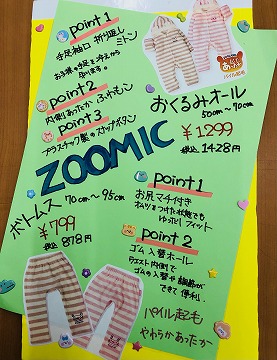 point 1
手足袖口 折り返し
ミトン
お子様の手足を冷えから
守ります。
point 2
内側あったか ふわもこ
point 3
プラスチック製のスナップボタン
あったか
パイル起毛
おくるみオール
50cm～70cm
¥1299
税込 1428円
ZOOMIC
ボトムス 70cm～95cm
¥799
税込 878円
point 1
お尻マチ付き
オムツをつけた状態でも
ゆったりフィット
point 2
ゴム入替ホール
ウエスト内側で
ゴムの入替や調節が
できて便利。
パイル起毛
やわらかあったか